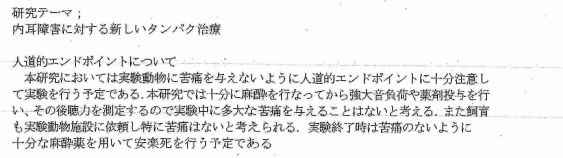 研究テーマ；
内耳障害に対する新しいタンパク治療
人道的エンドポイントについて
本研究においては実験動物に苦痛を与えないように人道的エンドポイントに十分注意し
て実験を行う予定である.本研究では十分に麻酔を行なってから強大音負荷や薬剤投与を行
い、その後聴力を測定するので実験中に多大な苦痛を与えることはないと考える．また飼育
も実験動物施設に依頼し特に苦痛はないと考えられる．実験終了時は苦痛のないように
十分な麻酔薬を用いて安楽死を行う予定である